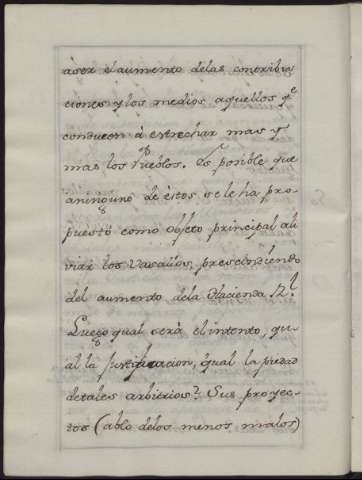 à ser el aumento delas contribu
ciones y los medios aquellos q.e
conducen à estrechar mas y
mas los Pueblos. Es posible que
aninguno de èstos se le ha pro
puesto como objeto principal ali
viar los Vasallos, prescindiendo
del aumento dela Hacienda R.l
Luego qual serà el intento, qu
al la Justificacion, qual la piedad
detales arbitrios? Sus proyec-
tos (ablo delos menos malos)